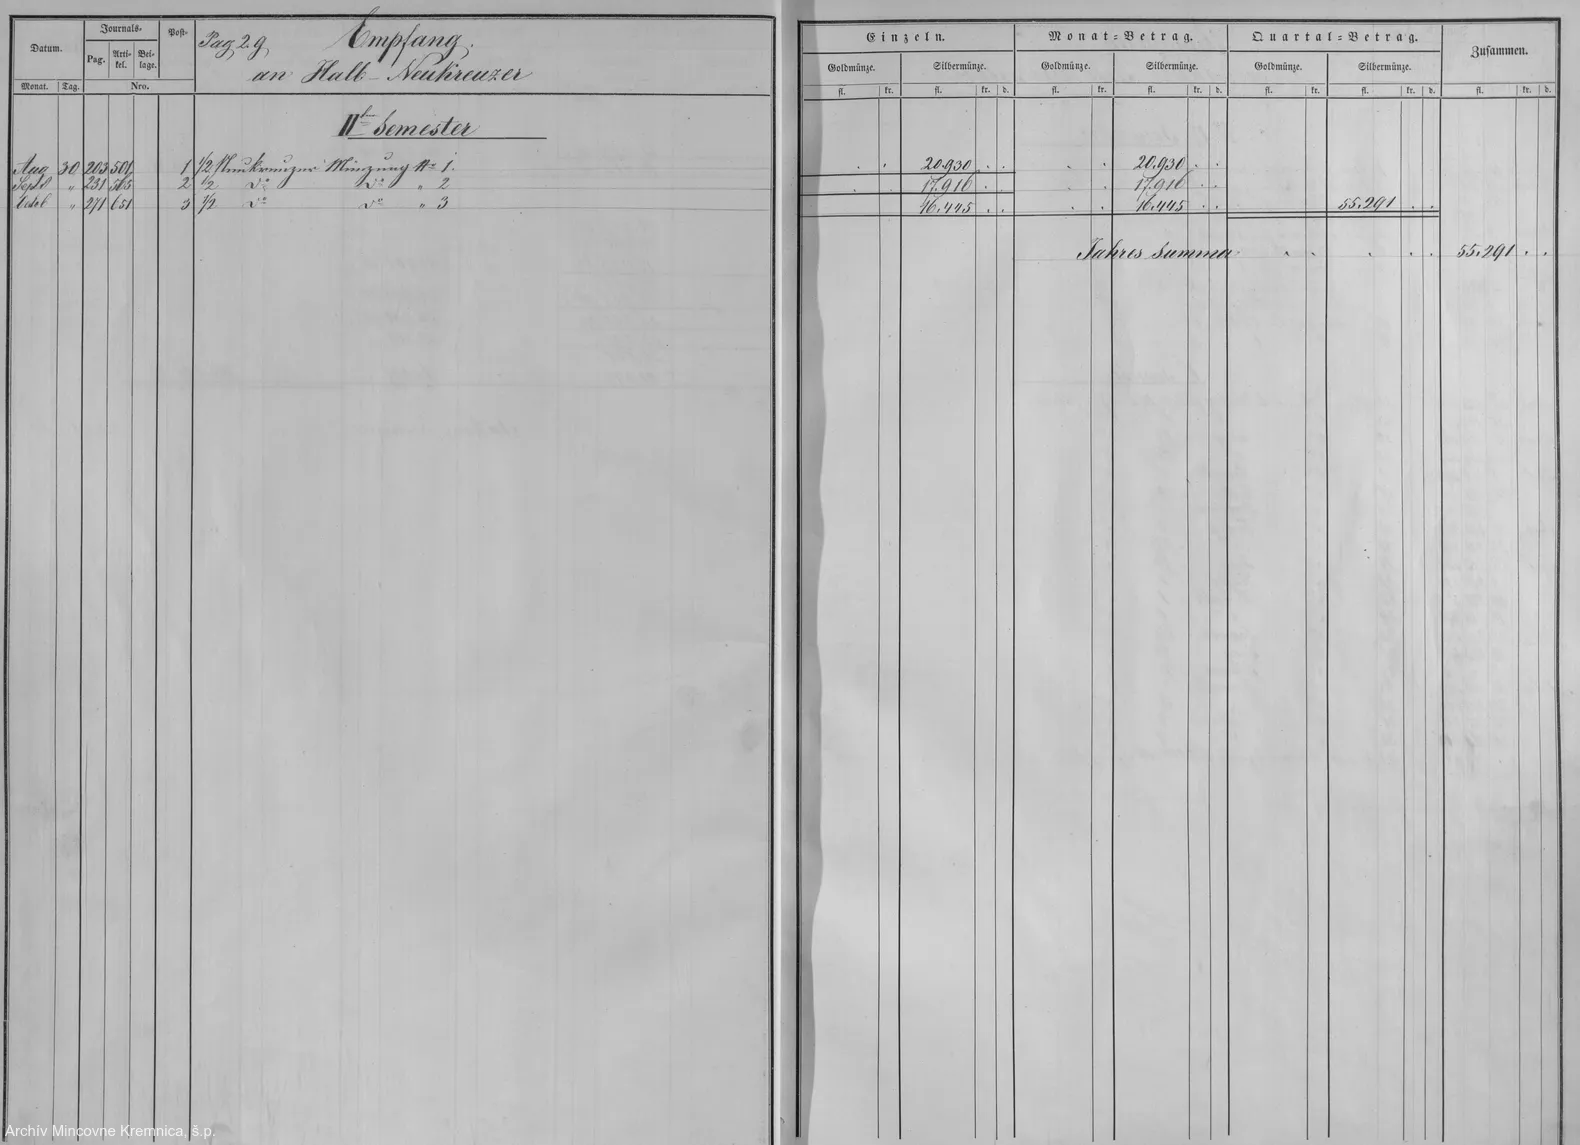 Datum. Journals- Post-
Pag. Arti-kel. Bei-lage.
Monat. Tag. Nro.
Pag 29 Empfang.
an Halb-Neukreuzer
Einzeln. Monat-Betrag. Quartal-Betrag. Zusammen.
Goldmünze. Silbermünze. Goldmünze. Silbermünze. Goldmünze. Silbermünze.
fl. kr. fl. kr. d. fl. kr. fl. kr. d. fl. kr. fl. kr. d. fl. kr. d.
IItes Semester
Aug 30 203 501 1 1/2 Neukreuzer Münzung No 1. 20.930 . . 20.930 . .
Sept " 231 2 1/2 do do " 2 17.916 . . 17.916 . .
" 271 651 3 1/2 do do " 3 16.445 . . 16.445 . . 55.291 . .
Jahres Summa . . . . . 55.291 . .
Archív Mincovne Kremnica, š.p.